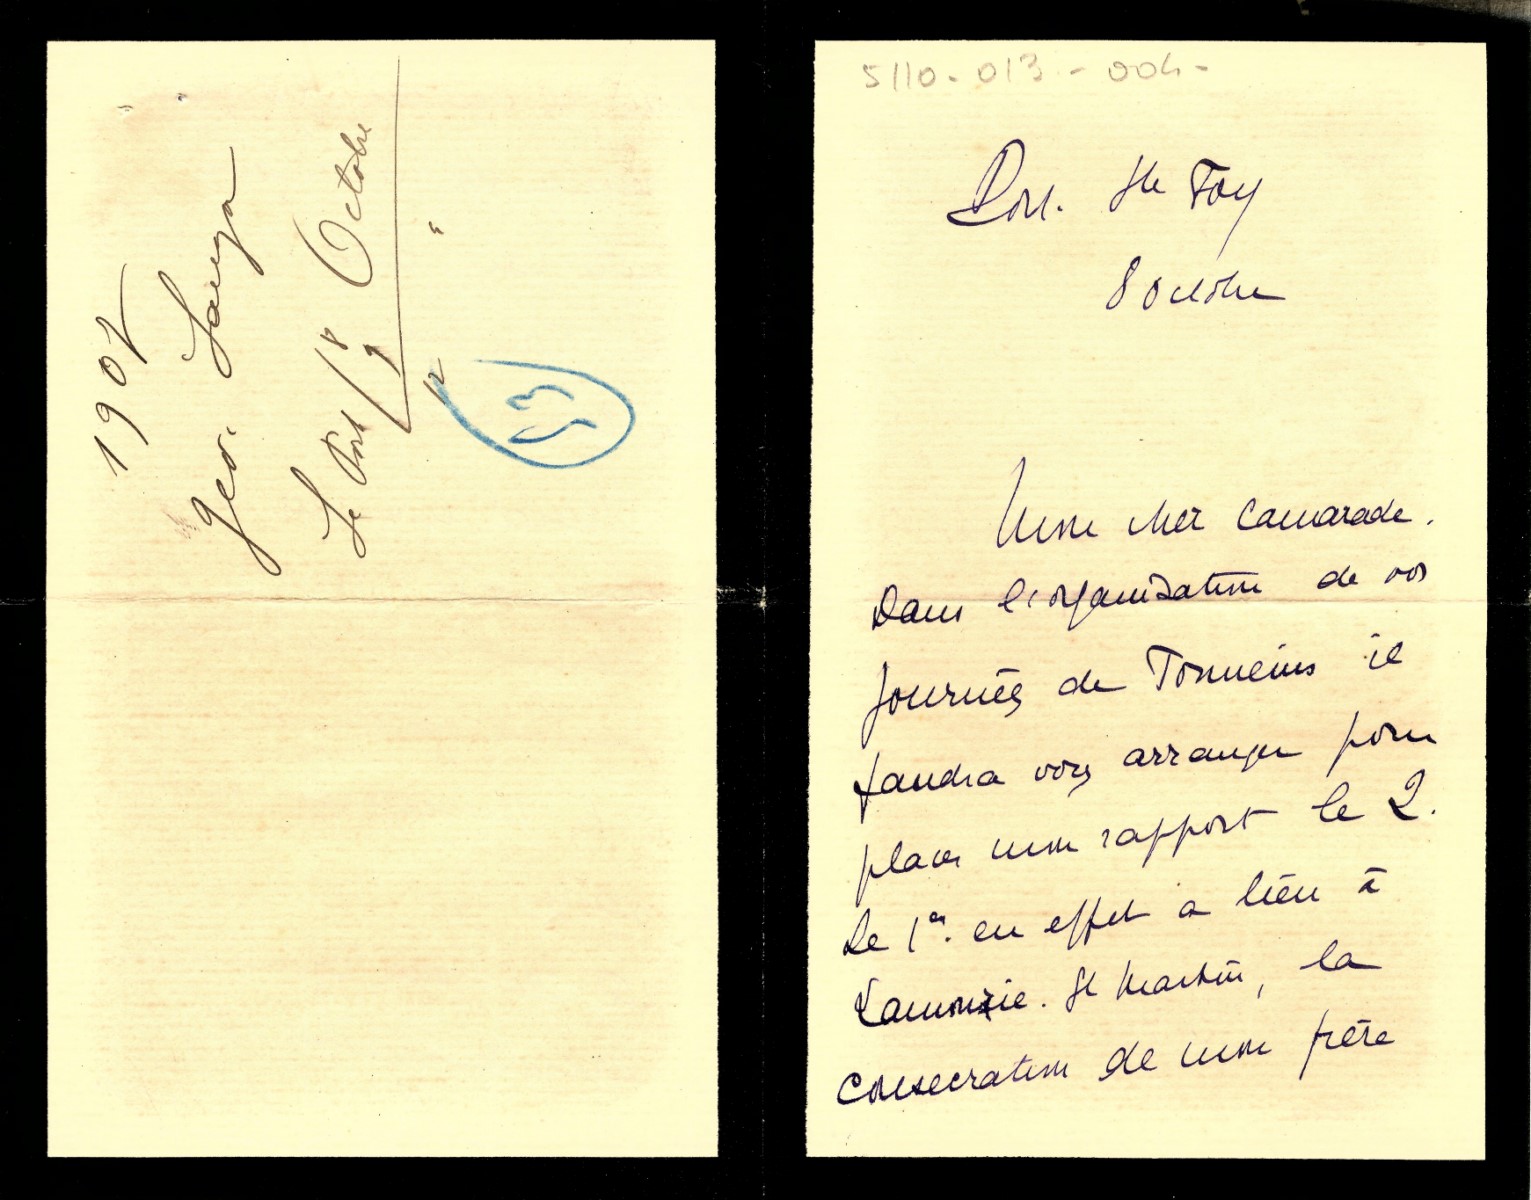 1907
Geo. Lauga
Le Port 8 Octobre
9
12
53
5110-013-004-
Port. Ste Foy
8 octobre
Mon cher camarade.
Dans l'organisation de vos
journées de Tonneins il
faudra vous arranger pour
placer mon rapport le 2.
Le 1er. en effet a lieu à
Lamonzie. St Martin, la
consecration de mon frère